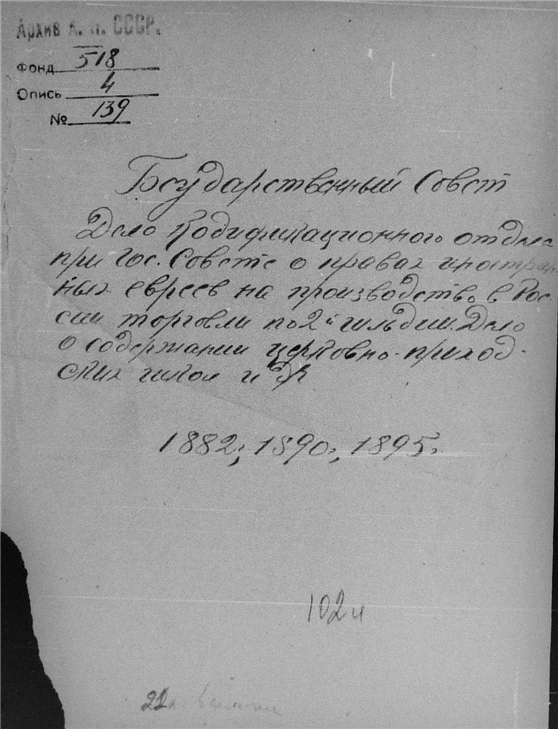 Архив А. Н. СССР.
Фонд 518
Опись 4
№ 139
Государственный Совет
Дело Кодификационного отдела
при Гос. Совете о правах иностран-
ных евреев на производство в Рос-
сии торговли по 2й гильдии. Дело
о содержании церковно-приход-
ских школ и др
1882, 1890, 1895.